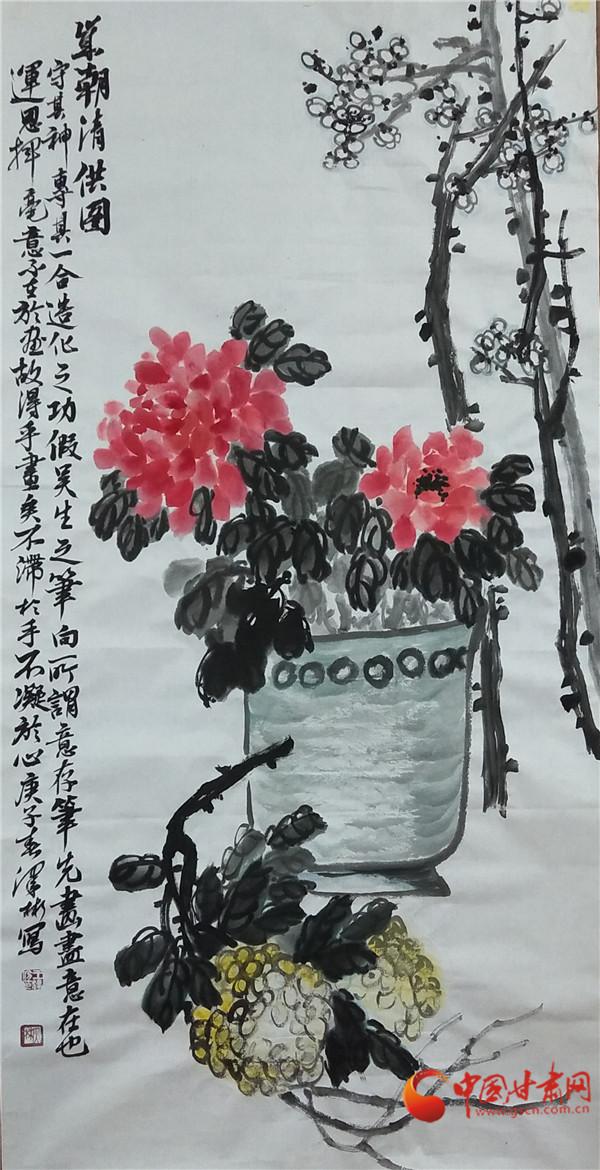 岁朝清供图
守其神專其一合造化之功假吴生之筆向所謂意存筆先畫盡意在也
運思揮毫意不在於画故得手畫矣不滞於手不凝於心庚子春澤彬寫
中国甘肃网
www.gscn.com.cn